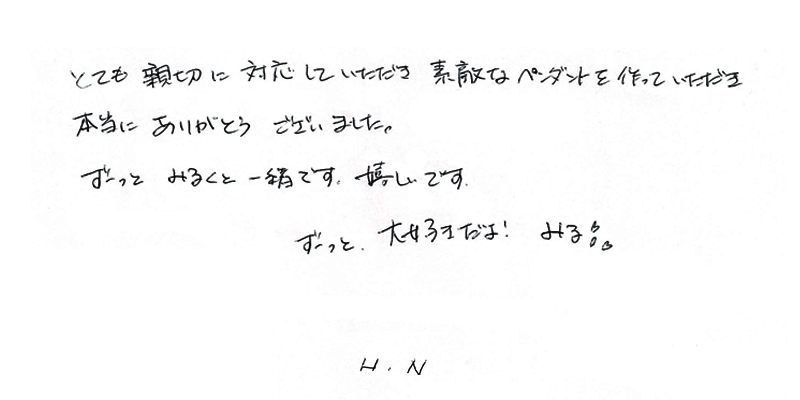 とても 親切に 対応していただき 素敵な ペンダントを 作っていただき
本当に ありがとう ございました。
ずーっと みるくと 一緒です。嬉しいです。
ずーっと、大好きだよ! みる
H.N